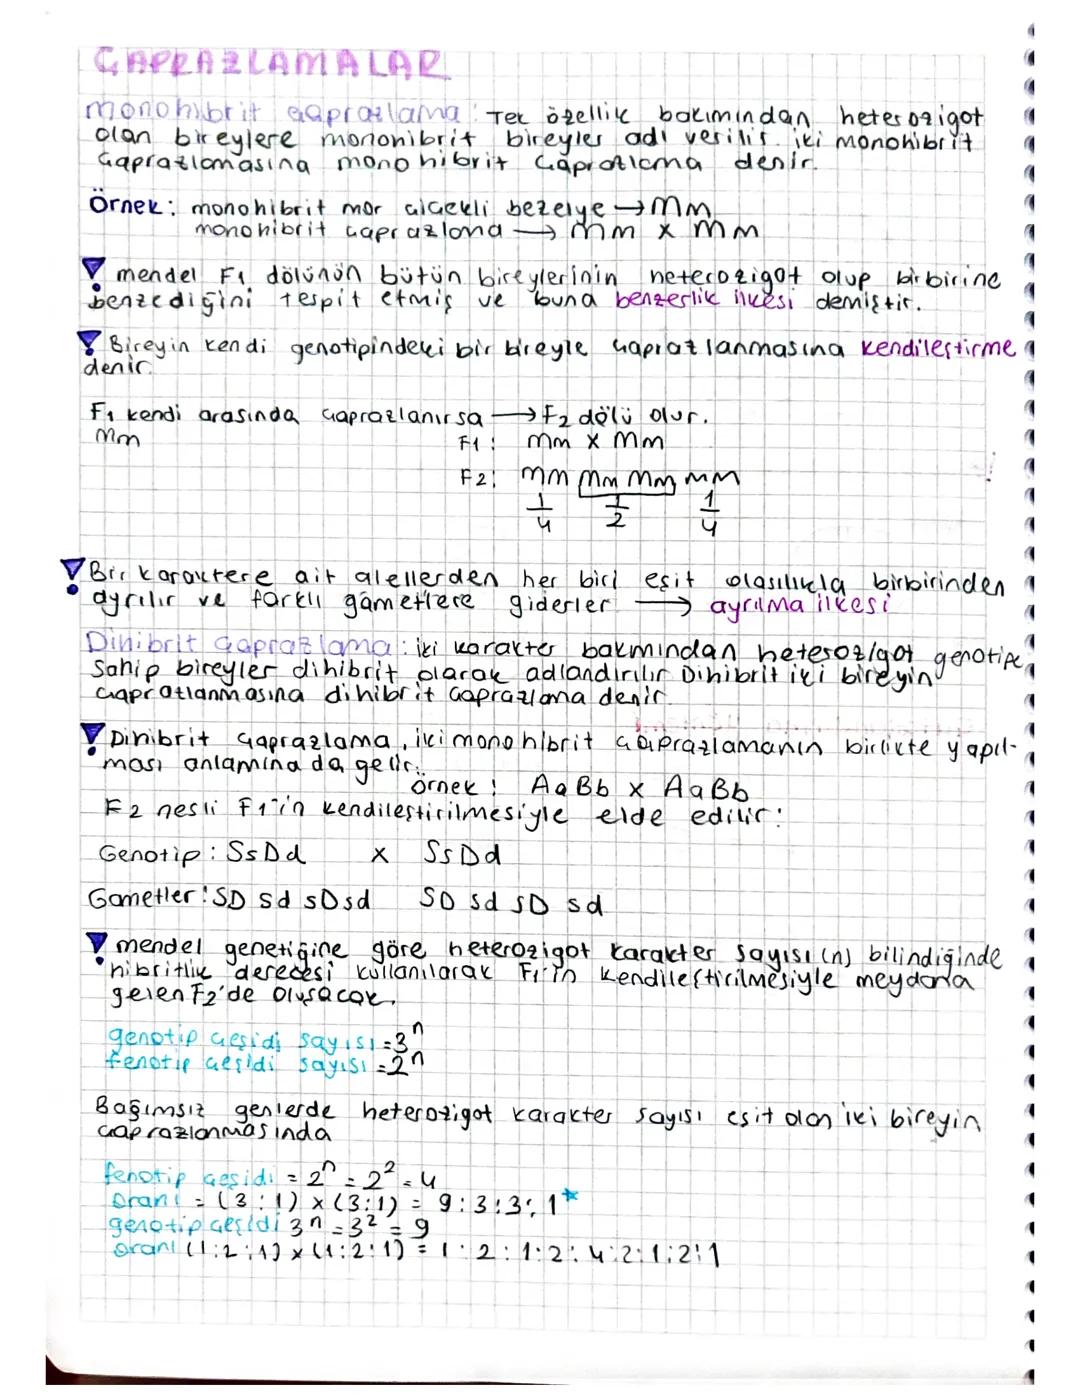 ÇAPRAZLAMALAR
monohibrit çaprazlama: Tek özellik bakımından heterozigot
olan bireylere monohibrit bireyler adı verilir. iki monohibrit
çaprazlamasına monohibrit çaprazlama denir.
Örnek: monohibrit mor çiçekli bezelye → Mm
monohibrit çaprazlama → Mm x Mm
! mendel F1 dölünün bütün bireylerinin heterozigot olup birbirine
benzediğini tespit etmiş ve buna benzerlik ilkesi demiştir.
! Bireyin kendi genotipindeki bir bireyle çaprazlanmasına kendileştirme
denir.
F1 kendi arasında çaprazlanırsa → F2 dölü olur.
Mm F1: Mm x Mm
F2: MM Mm Mm mm
1/4 1/2 1/4
! Bir karaktere ait alellerden her biri eşit olasılıkla birbirinden
ayrılır ve farklı gametlere giderler → ayrılma ilkesi
Dihibrit çaprazlama: iki karakter bakmından heterozigot genotipe
Sahip bireyler dihibrit olarak adlandırılır Dihibrit iki bireyin
çaprazlanmasına dihibrit çaprazlama denir.
! Dihibrit çaprazlama, iki monohibrit çaprazlamanın birlikte yapıl-
ması anlamına da gelir.
örnek: AaBb x AaBb
F2 nesli F1'in kendileştirilmesiyle elde edilir:
Genotip: SsDd x SsDd
Gametler: SD Sd sD sd SD Sd sD sd
! mendel genetiğine göre heterozigot karakter sayısı (n) bilindiğinde
hibritlik derecesi kullanılarak F1'in kendileştirilmesiyle meydana
gelen F2'de oluşacak.
genotip çeşidi sayısı = 3ⁿ
fenotip çeşidi sayısı = 2ⁿ
Bağımsız genlerde heterozigot karakter sayısı eşit olan iki bireyin
çaprazlanmasında
fenotip çeşidi = 2ⁿ = 2² = 4
Oranı = (3:1) x (3:1) = 9:3:3:1*
genotip çeşidi 3ⁿ = 3² = 9
oranı (1:2:1) x (1:2:1) = 1:2:1:2:4:2:1:2:1